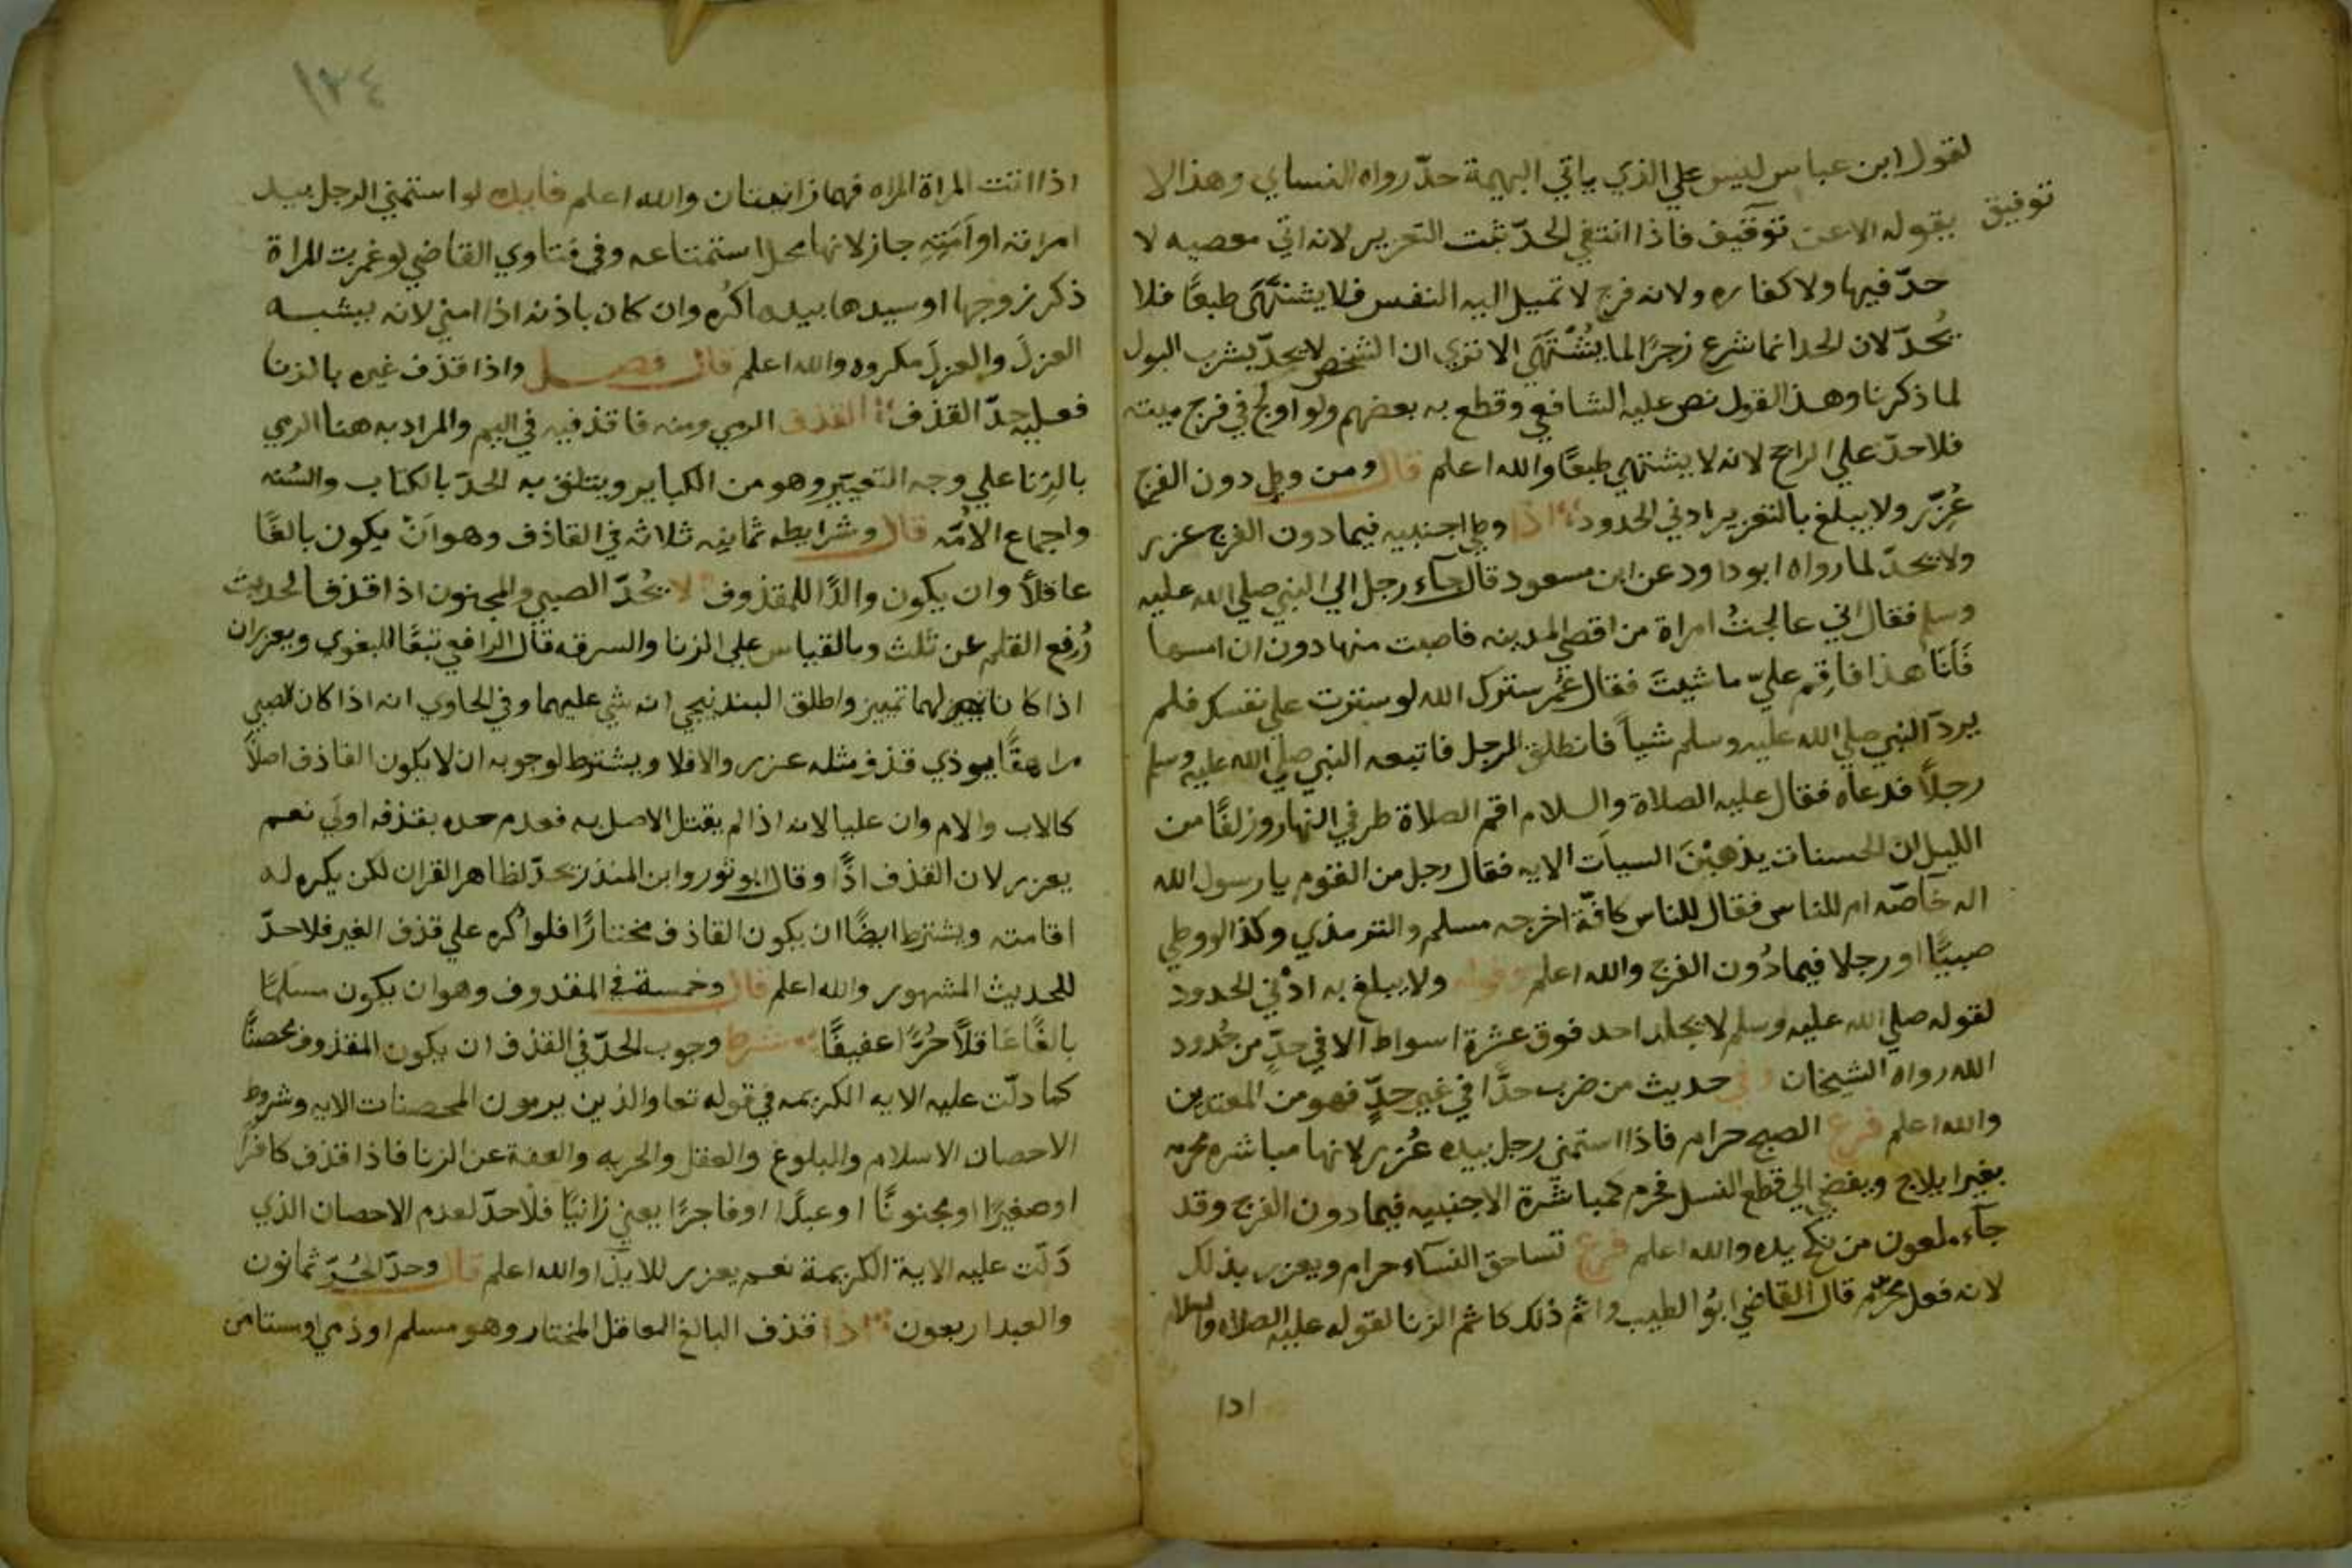 لقول ابن عباس ليس علي الذي ياتي البهيمة حدّ رواه النساي وهذا لا
يقوله الا عن توقيف فاذا انتفي الحدّ ثبت التعزير لانه اتي معصيه لا
توفيق
حدّ فيها ولا كفاره ولانه فرج لا تميل اليه النفس فلا يشتهَى طبعًا فلا
يُحدّ لان الحد انما شرع زجرًا لما يُشْتَهَي الا تري ان الشخص لا يحدّ بشرب البول
لما ذكرنا وهذا القول نص عليه الشافعي وقطع به بعضهم ولو اولج في فرج ميته
فلا حدّ علي الراجح لانه لا يشتهي طبعًا والله اعلم قال ومن وطي دون الفرج
عُزِّر ولا يبلغ بالتعزير ادني الحدود اذا وطي اجنبيه فيما دون الفرج عزر
ولا يحدّ لما رواه ابو داود عن ابن مسعود قال جآء رجل الي النبي صلي الله عليه
وسلم فقال اني عالجتُ امراة من اقصي المدينه فاصبت منها دون ان امسها
فَأنَا هذا فأقِم عليّ ما شيت فقال عُمر سترك الله لو سترت علي نفسك فلم
يردّ النبي صلي الله عليه وسلم شياً فانطلق الرجل فاتبعه النبي صلي الله عليه وسلم
رجلاً فدعاه فقال عليه الصلاة والسلام اقم الصلاة طرفي النهار وزلفًا من
الليل ان الحسنات يذهبْنَ السيآت الايه فقال رجل من القوم يا رسول الله
اله خآصّه ام للناس فقال للناس كافّة اخرجه مسلم والترمذي وكذا لو وطي
صبيًّا او رجلا فيما دُون الفرج والله اعلم وقوله ولا يبلغ به ادْني الحدود
لقوله صلي الله عليه وسلم لا يجلد احد فوق عشرة اسواط الا في حدٍّ من حُدود
الله رواه الشيخان وفي حديث من ضرب حدًّا في غير حدٍّ فهو من المعتدين
والله اعلم فرع الصبح حرام فاذا استمني رجل بيده عُزر لانها مباشره محرمه
بغير ايلاج ويفضي الي قطع النسل فحرم كمباشَرة الاجنبيه فيما دون الفرج وقد
جآء ملعون من نكح يده والله اعلم فرع تساحق النسآء حرام ويعزرن بذلك
لانه فعل محرّم قال القاضي ابُو الطيب واثم ذلك كاثم الزنا لقوله عليه الصلاه والسلام
اذا
١٢٤
اذا اتت المراة المراه فهما زانيتان والله اعلم فايده لو استمني الرجل بيد
امراته او اَمَتِهِ جاز لانها محل استمتاعه وفي فتاوي القاضي لو غمزت المراة
ذكر زوجها او سيدها بيدها كُره وان كان باذنه اذا امني لانه يشبه
العزلَ والعزلَ مكروه والله اعلم قال فصل واذا قذف غيره بالزنا
فعليه حدّ القذف القذف الرمي ومنه فاقذفيه في اليم والمراد به هنا الرمي
بالزِنا علي وجه التعيّير وهو من الكباير ويتعلق به الحدّ بالكتاب والسُنه
واجماع الامَّه قال وشرايطه ثمانيه ثلاثه في القاذف وهو انْ يكون بالغًا
عاقلاً وان يكون والدًا للمقذوف لا يُحدّ الصبي والمجنون اذا قذفا لحديث
رُفع القلم عن ثلث وبالقياس علي الزنا والسرقه قال الرافعي تبعًا للبغوي ويعزران
اذا كان لهما تمييز واطلق البندنيجي انه شي عليهما وفي الحاوي انه اذا كان الصبي
مراهقًا يوذي قذف مثله عزر والا فلا ويشترط لوجوبه ان لا يكون القاذف اصلاً
كالاب والام وان عليا لانه اذا لم يقتل الاصل به فعدم حده بقذفه اولَي نعم
يعزر لان القذف اذًا وقال ابو ثور وابن المنذر يحدّ لظاهر القران لكن يكره له
اقامته ويشترط ايضًا ان يكون القاذف مختارًا فلو اُكره علي قذف الغير فلا حدّ
للحديث المشهور والله اعلم قال وخمسة في المقذوف وهو ان يكون مسلمًا
بالغًا عَاقلاً حُرًّا عفيفًا شرط وجوب الحدّ في القذف ان يكون المقذوف محصنًا
كما دلّت عليه الايه الكريمه في قوله تعا والذين يرمون المحصنات الايه وشروط
الاحصان الاسلام والبلوغ والعقل والحريه والعفة عن الزنا فاذا قذف كافرًا
او صغيرًا او مجنونًا او عبدًا او فاجرًا يعني زانيًا فلا حدّ لعدم الاحصان الذي
دَلّت عليه الاية الكريمة نعم يعزر للايذا والله اعلم قال وحدّ الحُرّ ثمانون
والعبد اربعون اذا قذف البالغ العاقل المختار وهو مسلم او ذمي او مستامن